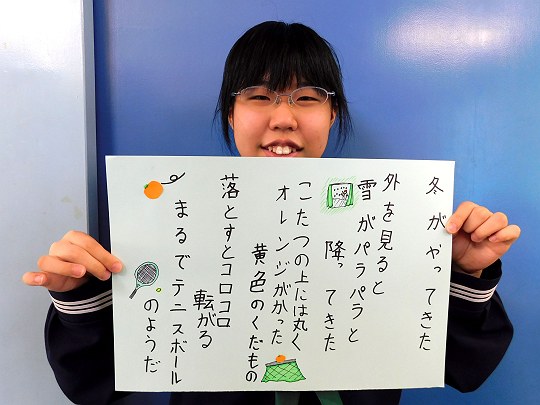 冬がやってきた
外を見ると
雪がパラパラと
降ってきた
こたつの上には丸く
オレンジがかった
黄色のくだもの
落とすとコロコロ
転がる
まるでテニスボール
のようだ